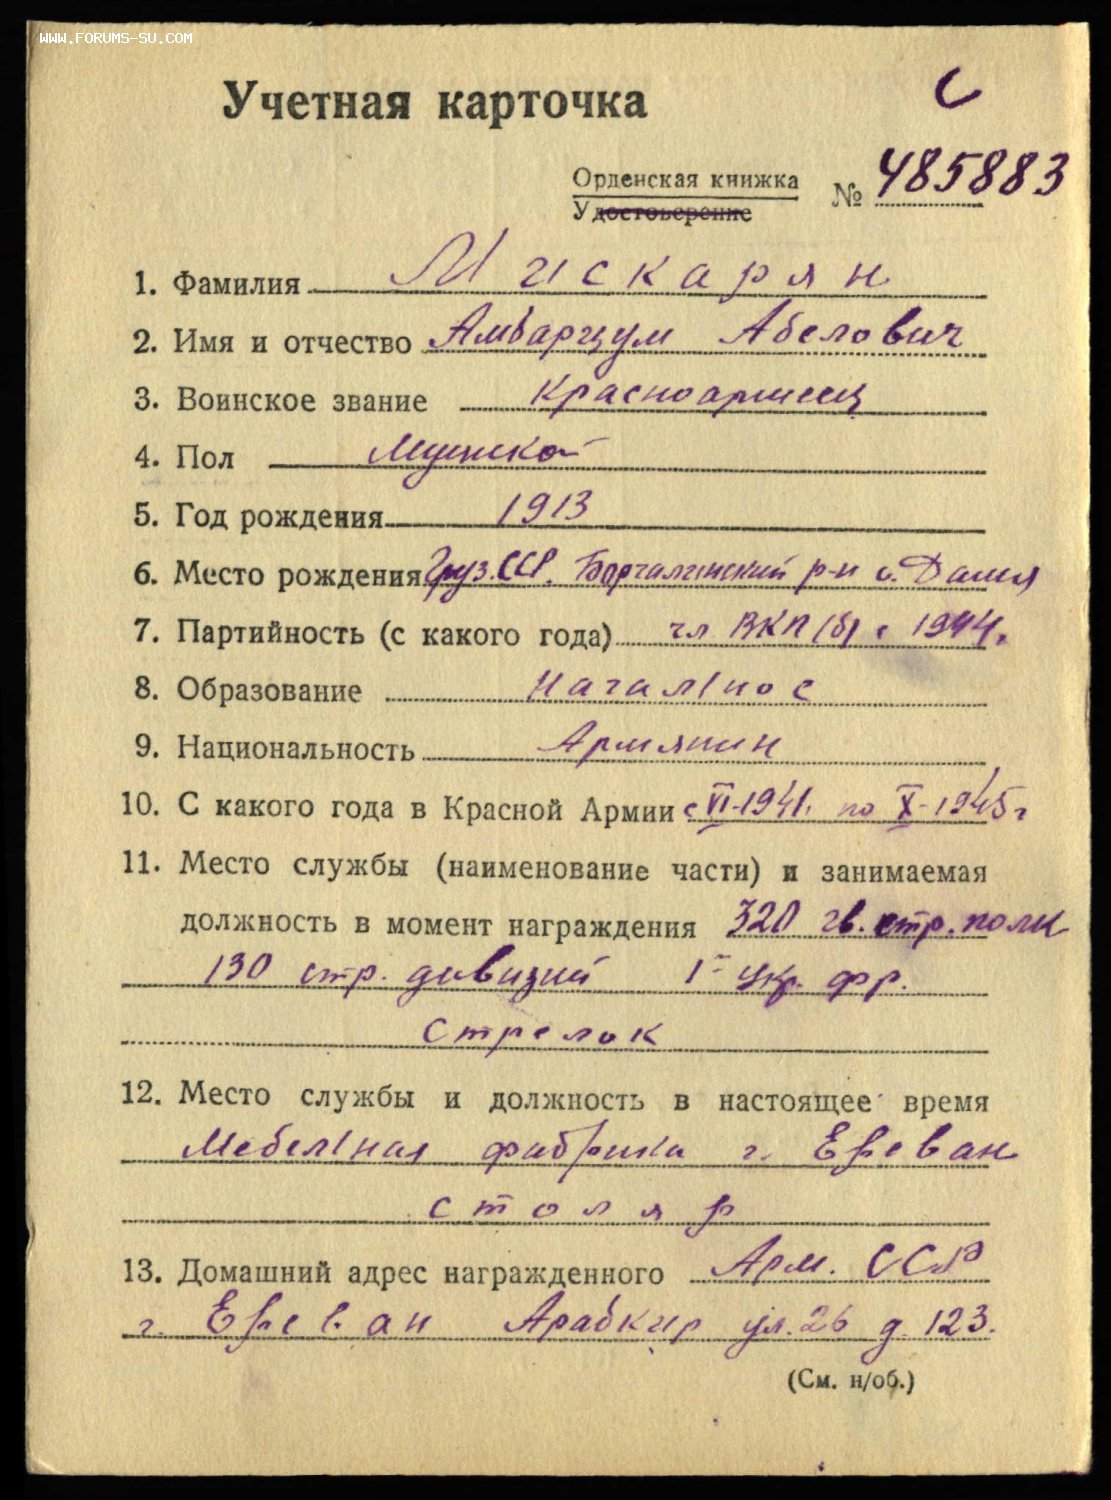 WWW.FORUMS-SU.COM
С
Учетная карточка
Орденская книжка
Удостоверение
№ 485883
1. Фамилия Мискарян
2. Имя и отчество Амбарцум Абелович
3. Воинское звание Красноармеец
4. Пол Мужской
5. Год рождения 1913
6. Место рождения Груз.ССР. Борчалинский р-н с.
7. Партийность (с какого года) чл ВКП(б) с 1944.
8. Образование Начальное
9. Национальность Армянин
10. С какого года в Красной Армии с VI-1941. по X-1945г
11. Место службы (наименование части) и занимаемая
должность в момент награждения 320 гв. стр. полк
130 стр. дивизии 1й Укр. фр.
Стрелок
12. Место службы и должность в настоящее время
Мебельная фабрика г. Ереван
столяр
13. Домашний адрес награжденного Арм. ССР
г. Ереван Арабкир ул. 26 д. 123.
(См. н/об.)